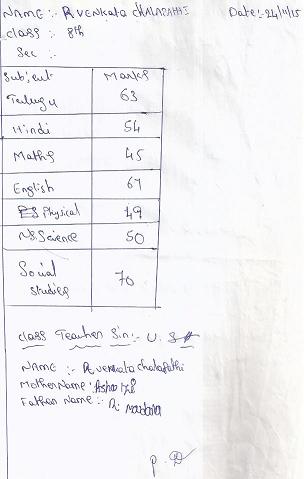 NAME :- R VENKATA CHALAPATHI Date:- 24/11/15
class : 8th
Sec :-
Subject Marks
Telugu 63
Hindi 54
Maths 45
English 67
Physical 49
N.Science 50
Social studies 70
class Teacher Sin:- U.
NAME :- R venkata chalapathi
Mother Name :
Father Name :- R.
P.